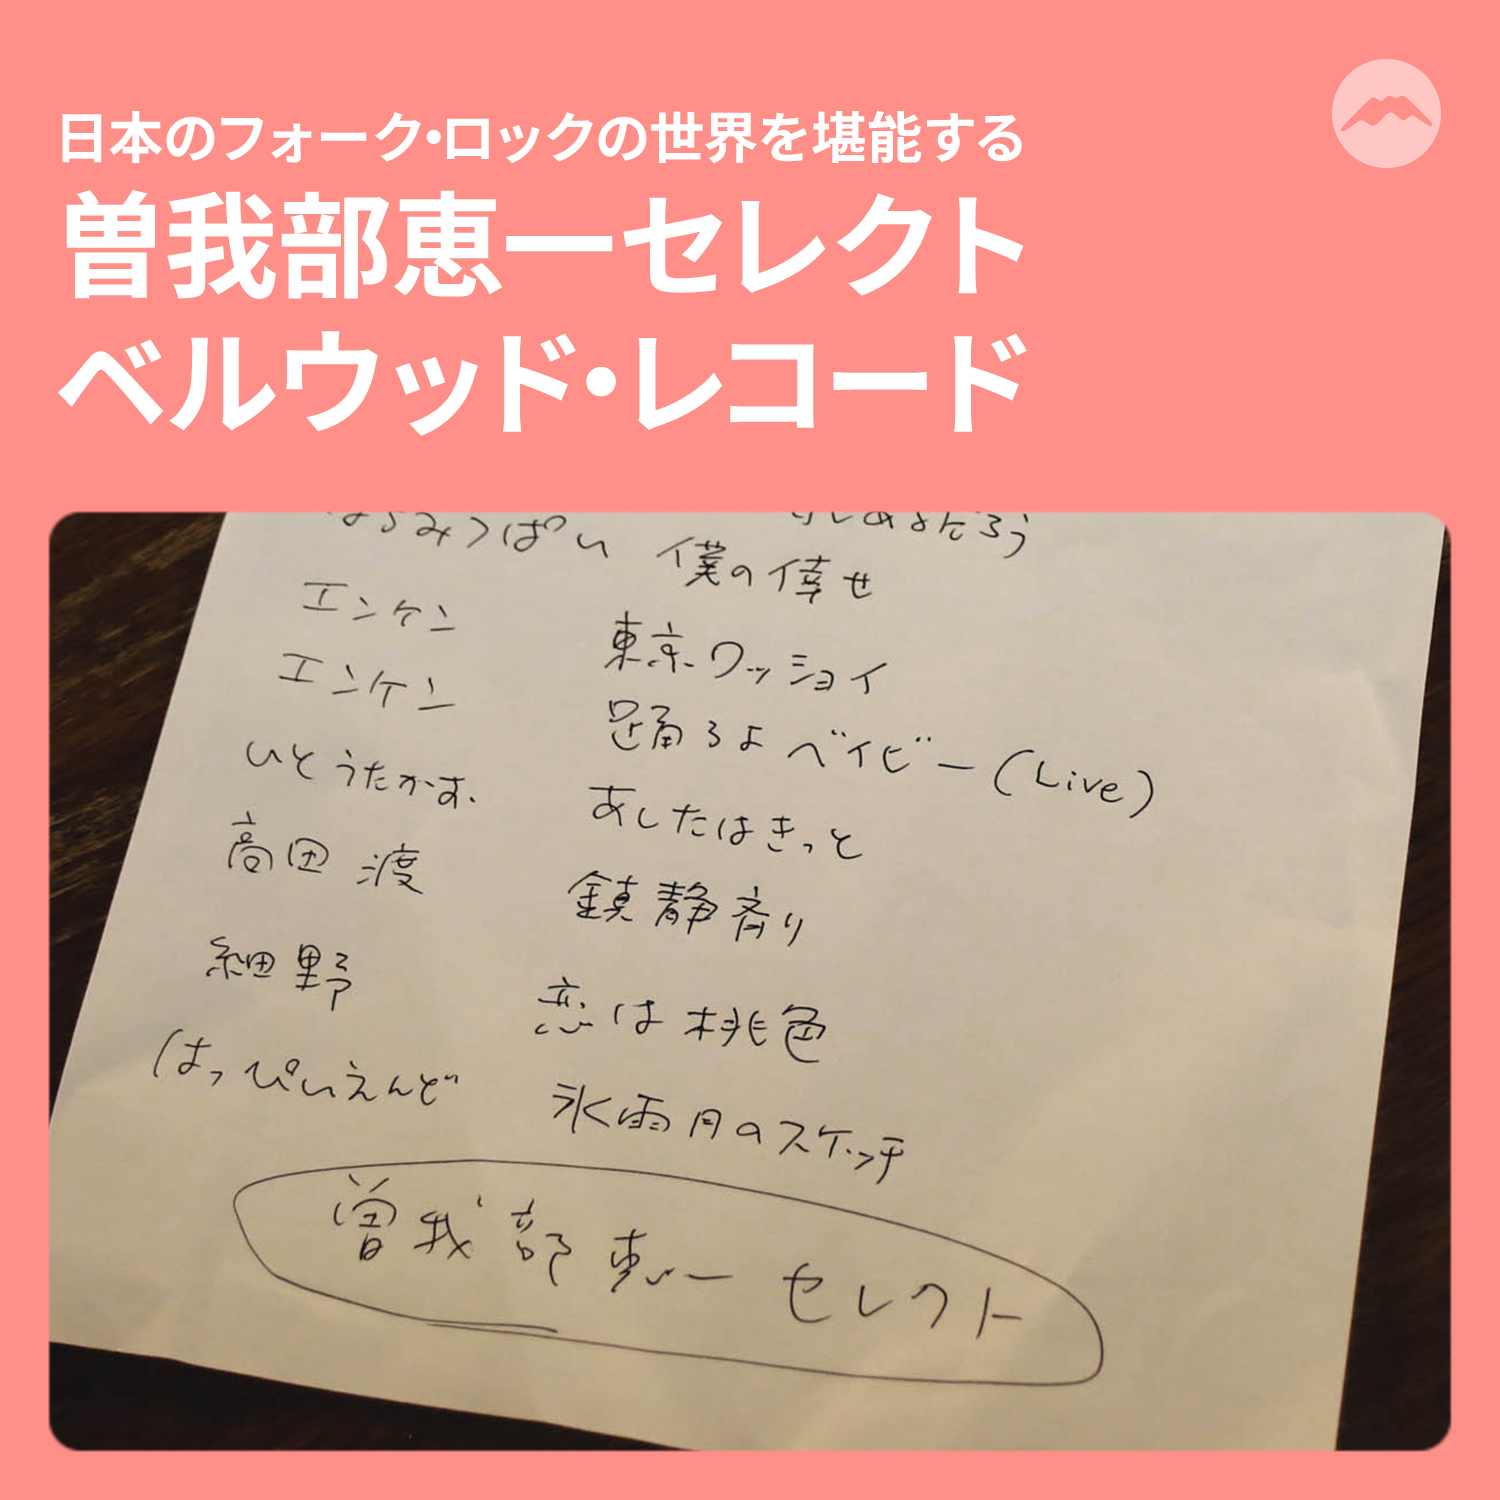 日本のフォーク・ロックの世界を堪能する
曽我部恵一セレクト
ベルウッド・レコード
はちみつぱい 僕の倖せ
エンケン 東京ワッショイ
エンケン 踊ろよベイビー(Live)
いとうたかお あしたはきっと
高田渡 鎮静剤
細野 恋は桃色
はっぴいえんど 氷雨月のスケッチ
曽我部恵一セレクト